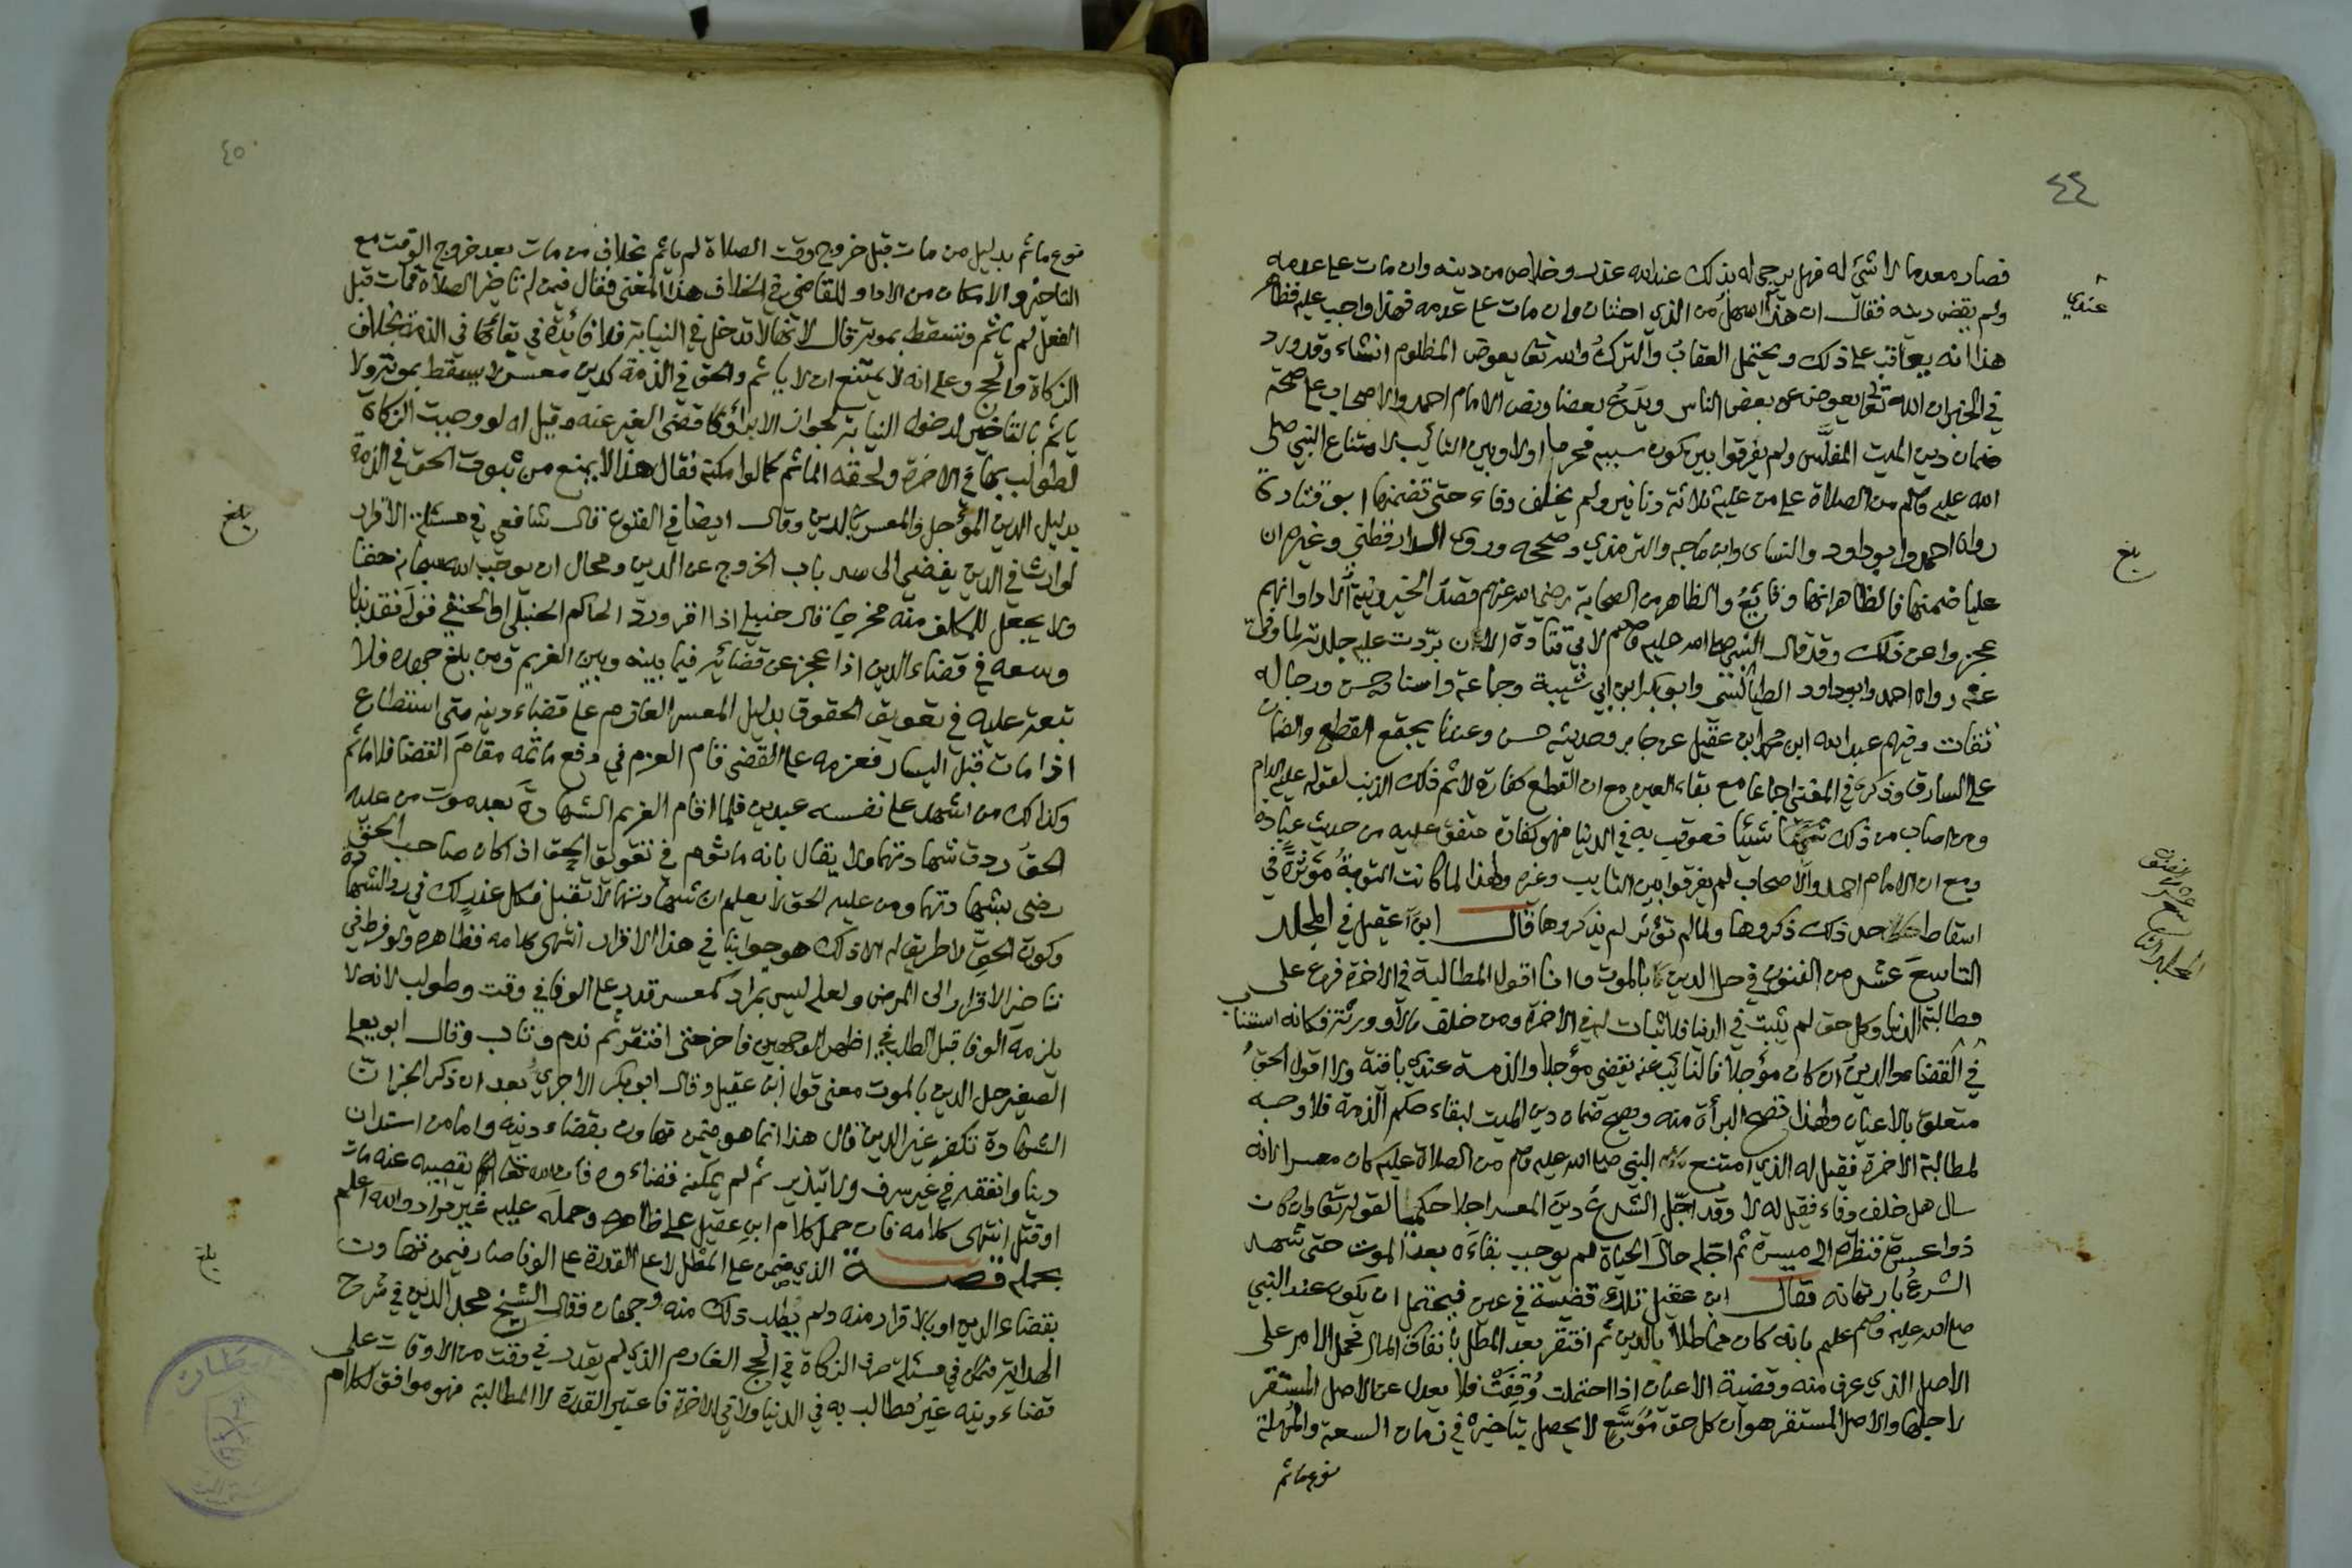 ٤٤
فصار معدما لا شيء له فهل يرجى له بذلك عند الله عذر وخلاص من دينه وان مات على عدمه
ولم يقض دينه فقال ان هذا اسهل من الذي اختان وان مات على عدمه فهذا واجب عليه فظاهر
عندي
هذا انه يعاقب على ذلك ويحتمل العقاب والترك والله تعالى يعوض المظلوم انشاء وقد ورد
في الخبر ان الله تعالى يعوض عن بعض الناس ويدع بعضا ونص الامام احمد والاصحاب على صحة
ضمان دين الميت المفلس ولم يفرقوا بين كون سببه محرما اولا وبين التائب لامتناع النبي صلى
الله عليه وسلم من الصلاة على من عليه ثلاثة دنانير ولم يخلف وفاء حتى تضمنها ابو قتادة
رواه احمد وابو داود والنساى وابن ماجه والترمذي وصححه وروى الدارقطني وغيره ان
بلغ
عليا ضمنها فالظاهر انها وقائع والظاهر من الصحابة رضي الله عنهم قصد الخير ونية الادا وانهم
عجزوا عن ذلك وقد قال النبي صلى الله عليه وسلم لابي قتادة الآن بردت عليه جلدته لما وفى
عنه رواه احمد وابو داود الطيالسي وابو بكر ابن ابي شيبة وجماعة واسناده حسن ورجاله
ثقات وفيهم عبد الله ابن محمد ابن عقيل عن جابر وحديثه حسن وعندنا يجتمع القطع والضمان
على السارق وذكره في المغني اجماعا مع بقاء العين مع ان القطع كفارة لاثم ذلك الذنب لقوله عليه السلام
ومن اصاب من ذلك شيئا فعوقب به في الدنيا فهو كفارة متفق عليه من حديث عبادة
ومع ان الامام احمد والاصحاب لم يفرقوا بين التايب وغيره ولهذا لما كانت التوبة مؤثرة في
اسقاط حد ذلك ذكروها ولما لم تؤثر لم يذكروها قال ابن عقيل في المجلد
التاسع عشر من الفنون في حل الدين بالموت وانا اقول المطالبة في الاخرة فرع على
مطالبة الدنيا وكل حق لم يثبت في الدنيا فلا ثبات له في الاخرة ومن خلف مالا وورثة فكانه استناب
في القضاء والدين ان كان مؤجلا فالنائب عنه يقضي مؤجلا والذمة عندي باقية ولا اقول الحق
متعلق بالاعيان ولهذا تصح البرأة منه ويصح ضمان دين الميت لبقاء حكم الذمة فلا وجه
لمطالبة الاخرة فقيل له الذي امتنع النبي صلى الله عليه وسلم من الصلاة عليه كان معسرا لانه
سال هل خلف وفاء فقيل له لا وقد اجل الشرع دين المعسر اجلا حكميا لقوله تعالى وان كان
ذوا عسرة فنظرة الى ميسرة ثم اجله حال الحياة لم يوجب بقاءه بعد الموت حتى شهد
الشرع بارتهانه فقال ابن عقيل تلك قضية في عين فيحتمل ان يكون عند النبي
صلى الله عليه وسلم علم بانه كان مماطلا بالدين ثم افتقر بعد المطل بانفاق المال فحمل الامر على
الاصل الذي عرف منه وقضية الاعيان اذا احتملت وقفت فلا يعدل عن الاصل المستقر
لاجلها والاصل المستقر هو ان كل حق موسع لا يحصل بتاخيره في زمان السعة والمهلة
نوع مأثم
٤٥
نوع مأثم بدليل من مات قبل خروج وقت الصلاة لم ياثم بخلاف من مات بعد خروج الوقت مع
التاخير والامكان من الادا وللقاضي في الخلاف هذا المعنى فقال فيمن لم تاخير الصلاة فمات قبل
الفعل لم ياثم وتسقط بموته قال لانها لا تدخل في النيابة فلا فائدة في بقائها في الذمة بخلاف
الزكاة والحج وعلى انه لا يمتنع ان لا ياثم والحق في الذمة كدين معسر لا يسقط بموته ولا
ياثم بالتاخير لدخول النيابة لجواز الابراء وقضى الغير عنه وقيل له لو وجبت الزكاة
لطولب بها في الاخرة ولحقه الماثم كما لو امكنه فقال هذا لا يمنع من ثبوت الحق في الذمة
بدليل الدين المؤجل والمعسر بالدين وقال ايضا في الفنون قال شافعي في مسئلة الاقرار
بلغ
لوارث في الدين يفضي الى سد باب الخروج عن الدين ومحال ان يوجب الله سبحانه حقا
ولا يجعل للمكلف منه مخرجا قال حنبلي اذا اقر ورد الحاكم الحنبلي او الحنفي قوله فقد بذل
وسعه في قضاء الدين اذا عجز عن قضائه فيما بينه وبين الغريم ومن بلغ جهده فلا
تبعة عليه في تعويق الحقوق بدليل المعسر العازم على قضاء دينه متى استطاع
اذا مات قبل اليسار فعزمه على القضى قام العزم في دفع ماثمه مقام القضا فلا ماثم
وكذلك من اشهد على نفسه عبدين فلما اقام الغريم الشهادة بعد موت من عليه
الحق ردت شهادتهما ولا يقال بانه ماثوم في تعويق الحق اذ كان صاحب الحق
رضى بشهادتهما ومن عليه الحق لا يعلم ان شهادتهما لا تقبل فكل عذر لك في رد الشهادة
وكون الحق لا طريق له الا ذلك هو جوابنا في هذا الاقرار انتهى كلامه فظاهره ولو فرط في
تاخير الاقرار الى المرض ولعله ليس بمراد كمعسر قدر على الوفا في وقت وطولب لانه لا
يلزمه الوفا قبل الطلب في اظهر الوجهين فاخر حتى افتقر ثم ندم وتاب وقال ابو يعلى
الصغير حل الدين بالموت معنى قول ابن عقيل وقال ابو بكر الاجري بعد ان ذكر الخبر ان
الشهادة تكفر غير الدين قال هذا انما هو فيمن تهاون بقضاء دينه واما من استدان
دينا وانفقه في غير سرف ولا تبذير ثم لم يمكنه قضاءه فان الله تعالى يقضيه عنه مات
او قتل انتهى كلامه فان حمل كلام ابن عقيل على ظاهره وحمله عليه غير مراد والله اعلم
يحمل قصة الذي ضمن على المطل لا على القدرة على الوفا صار فيمن تهاون
بلغ
بقضاء الدين او بالاقرار منه ولم يطلب ذلك منه وجهان فقال الشيخ مجد الدين في شرح
الهداية في مسئلة صرف الزكاة في الحج الغارم الذي لم يقدر في وقت من الاوقات على
قضاء دينه غير مطالب به في الدنيا ولا في الاخرة فاعتبر القدرة لا المطالبة فهو موافق لكلام